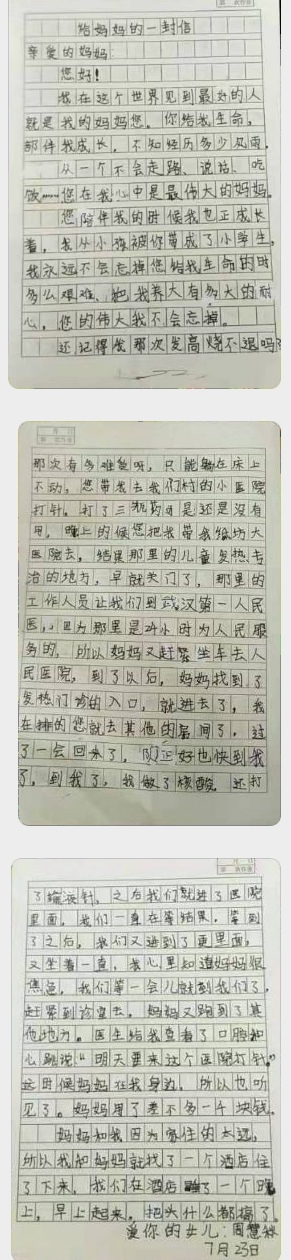 给妈妈的一封信
亲爱的妈妈:
您好!
我在这个世界见到最好的人
就是我的妈妈您。你给我生命,
部伴我成长,不知经历多少风雨,
从一个不会走路、说话、吃
饭……您在我心中是最伟大的妈妈。
您陪伴我的时候我也正成长
着,我从小孩被你带成了小学生,
我永远不会忘掉您给我生命的时
多么艰难、把我养大有多大的耐
心,您的伟大我不会忘掉。
还记得我那次发高烧不退吗?
那次有多难受呀,只能躺在床上
不动,您带我去我们村的小医院
打针。打了三瓶药可是还是没有
用,晚上的候您把我带我纸坊大
医院去,结果那里的儿童发热专
治的地方,早就关门了,那里的
工作人员让我们到武汉第一人民
医,因为那里是24小时为人民服
务的,所以妈妈又赶紧坐车去人
民医院,到了以后,妈妈找到了
发热门诊的入口,就进去了,我
在排的您就去其他的房间了,过
了一会回来了,队正好也快到我
了,到我了,我做了核酸,还打
了输液针,之后我们就进了医院
里面,我们一直在等结果,等到
了之后,我们又进到了更里面,
又坐着一直,我心里知道妈妈很
焦急,我们等一会儿就到我们了,
赶紧到诊室去,妈妈又跑到了其
他地方。医生给我查看了口腔和
心跳说"明天要来这个医院打针,"
这时候妈妈在我身边,所以也听
见了。妈妈用了差不多一千块钱。
妈妈和我因为家住的太远,
所以我和妈妈就找了一个酒店住
了下来,我们在酒店睡了一个晚
上,早上起来,把头什么都搞了。
爱你的女儿:周慧
7月23日